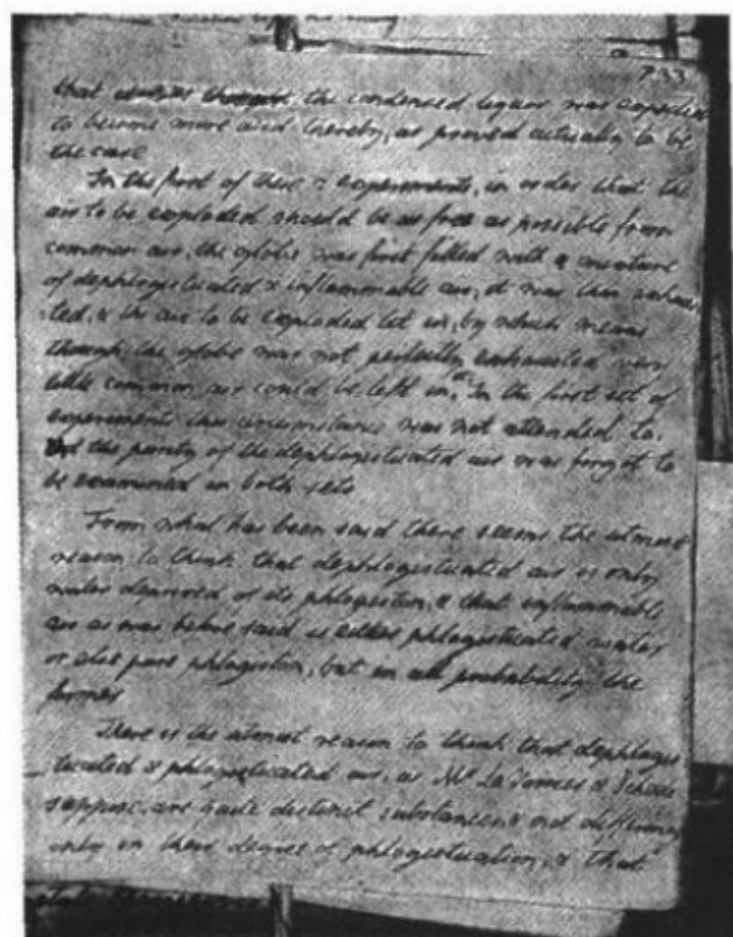 733
that the condensed liquor was expected
to become more acid thereby, as proved actually to be
the case
In the first of these 2 experiments, in order that the
air to be exploded should be as free as possible from
common air, the globe was first filled with a mixture
of dephlogisticated & inflammable air, it was then exhaus
ted, & the air to be exploded let in, by which means
though the globe was not perfectly exhausted very
little common air could be left in. In the first set of
experiments this circumstance was not attended to.
the purity of the dephlogisticated air was forgot to
be examined in both sets
From what has been said there seems the utmost
reason to think that dephlogisticated air is only
water deprived of its phlogiston, & that inflammable
air as was before said is either phlogisticated water
or else pure phlogiston, but in all probability the
former
There is the utmost reason to think that dephlogis
ticated & phlogisticated air, as Mr & Scheele
suppose, are quite distinct substances & not differing
only in their degree of phlogistication, & that